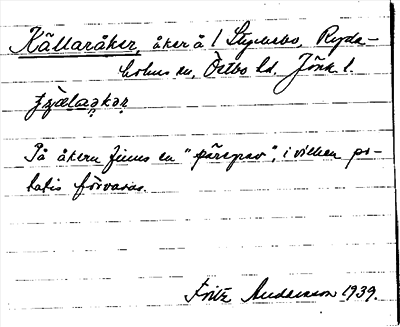 Källaråker, åker å / Stupebo, Ryda-
holms sn, Östbo hd. Jönk. l.
På åkern finns en "päregrav", i vilken po-
tatis förvaras.
Fritz Andersson 1939.